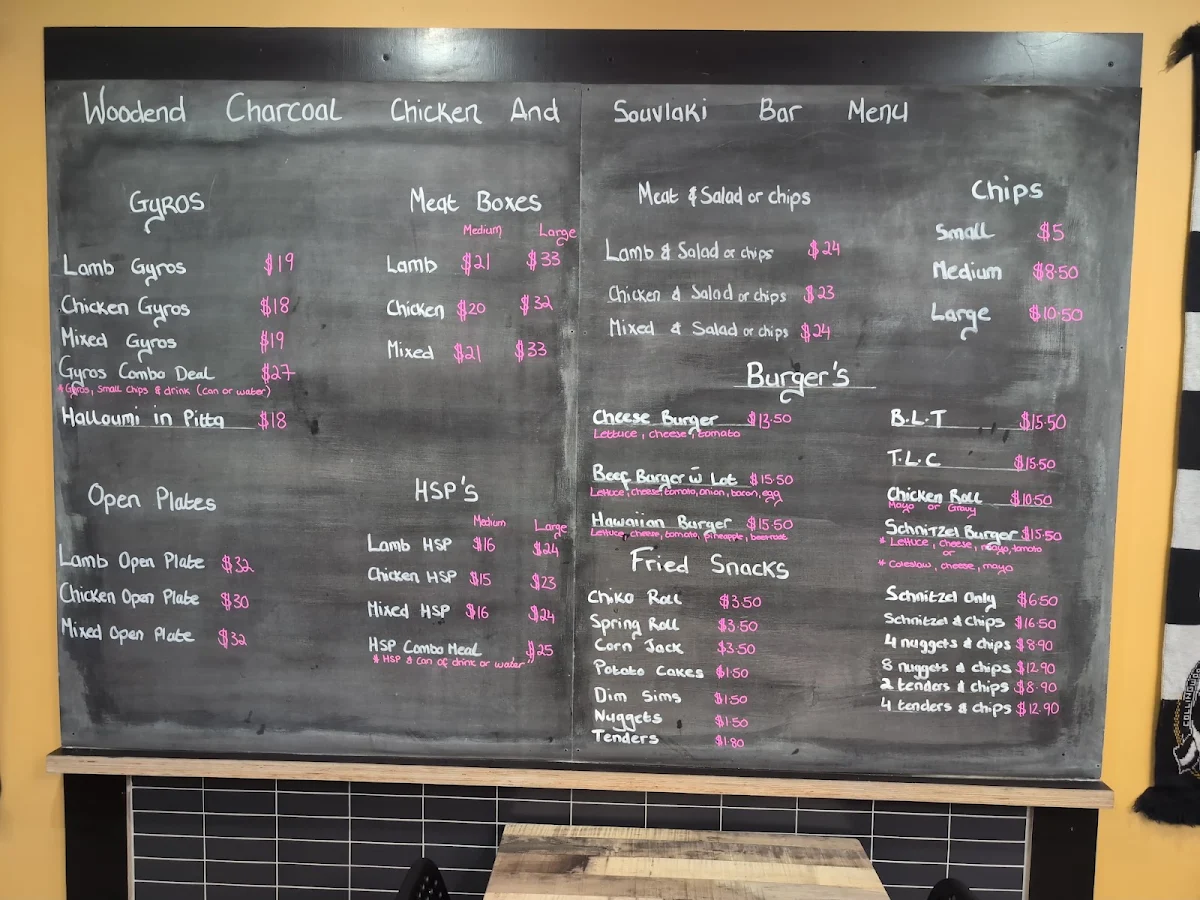 Woodend Charcoal Chicken And Souvlaki Bar Menu
Gyros
Lamb Gyros $19
Chicken Gyros $18
Mixed Gyros $19
Gyros Combo Deal $27
* Gyros, Small chips & drink (can or water)
Halloumi in Pitta $18
Meat Boxes
Medium Large
Lamb $21 $33
Chicken $20 $32
Mixed $21 $33
Open Plates
Lamb Open Plate $32
Chicken Open Plate $30
Mixed Open Plate $32
HSP's
Medium Large
Lamb HSP $16 $24
Chicken HSP $15 $23
Mixed HSP $16 $24
HSP Combo Meal $25
* HSP & Can of drink or water
Meat & Salad or chips
Lamb & Salad or chips $24
Chicken & Salad or chips $23
Mixed & Salad or chips $24
Chips
Small $5
Medium $8.50
Large $10.50
Burger's
Cheese Burger $13.50
Lettuce, cheese, tomato
Beef Burger w Lot $15.50
Lettuce, cheese, tomato, onion, bacon, egg
Hawaiian Burger $15.50
Lettuce, cheese, tomato, pineapple, beetroot
B.L.T $15.50
T.L.C $15.50
Chicken Roll $10.50
Mayo or Gravy
Schnitzel Burger $15.50
* Lettuce, cheese, mayo, tomato
or
* Coleslaw, cheese, mayo
Fried Snacks
Chiko Roll $3.50
Spring Roll $3.50
Corn Jack $3.50
Potato Cakes $1.50
Dim Sims $1.50
Nuggets $1.50
Tenders $1.80
Schnitzel Only $6.50
Schnitzel & Chips $16.50
4 nuggets & chips $8.90
8 nuggets & chips $12.90
2 tenders & chips $8.90
4 tenders & chips $12.90